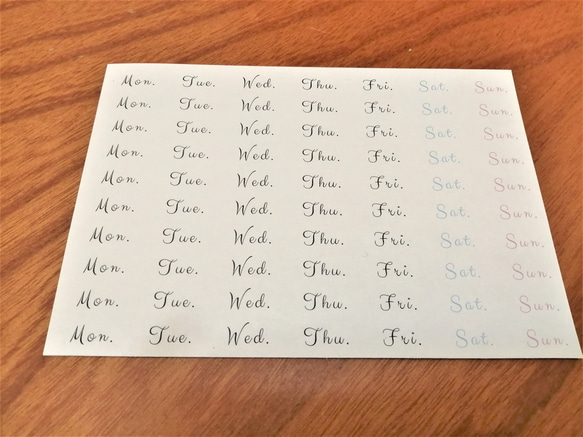 Mon. Tue. Wed. Thu. Fri. Sat. Sun.
Mon. Tue. Wed. Thu. Fri. Sat. Sun.
Mon. Tue. Wed. Thu. Fri. Sat. Sun.
Mon. Tue. Wed. Thu. Fri. Sat. Sun.
Mon. Tue. Wed. Thu. Fri. Sat. Sun.
Mon. Tue. Wed. Thu. Fri. Sat. Sun.
Mon. Tue. Wed. Thu. Fri. Sat. Sun.
Mon. Tue. Wed. Thu. Fri. Sat. Sun.
Mon. Tue. Wed. Thu. Fri. Sat. Sun.
Mon. Tue. Wed. Thu. Fri. Sat. Sun.